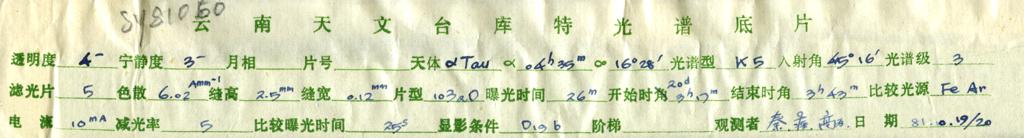 SY81050
云南天文台库特光谱底片
透明度 4⁻ 宁静度 3⁻ 月相 片号 天体 αTau α 04ʰ35ᵐ ∞ 16°28′ 光谱型 K5 入射角 45°16′ 光谱级 3
滤光片 5 色散 6.02 Amm⁻¹ 缝高 2.5mm 缝宽 0.12mm 片型 103aD 曝光时间 26ᵐ 开始时角 20d 3ʰ17ᵐ 结束时角 3ʰ43ᵐ 比较光源 FeAr
电流 10mA 减光率 5 比较曝光时间 25ˢ 显影条件 D19b 阶梯 观测者 日期 81.10.19/20